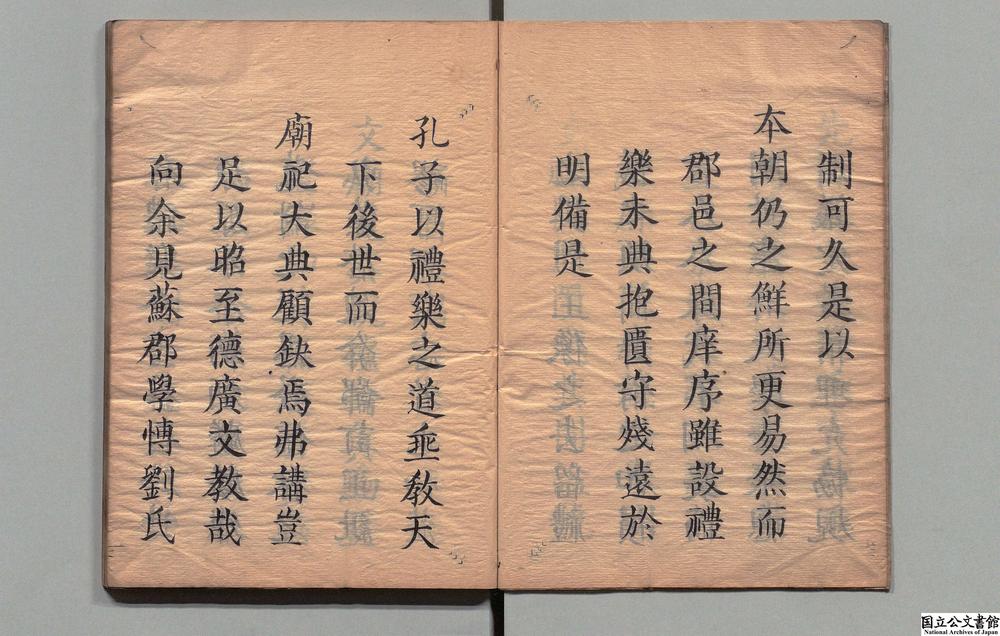 制可久是以
本朝仍之鮮所更易然而
郡邑之間庠序雖設禮
樂未典抱匱守殘遠於
明備是
孔子以禮樂之道垂教天
下後世而
廟祀大典顧鈌焉弗講豈
足以昭至德廣文教哉
向余見蘇郡學愽劉氏
国立公文書館
National Archives of Japan